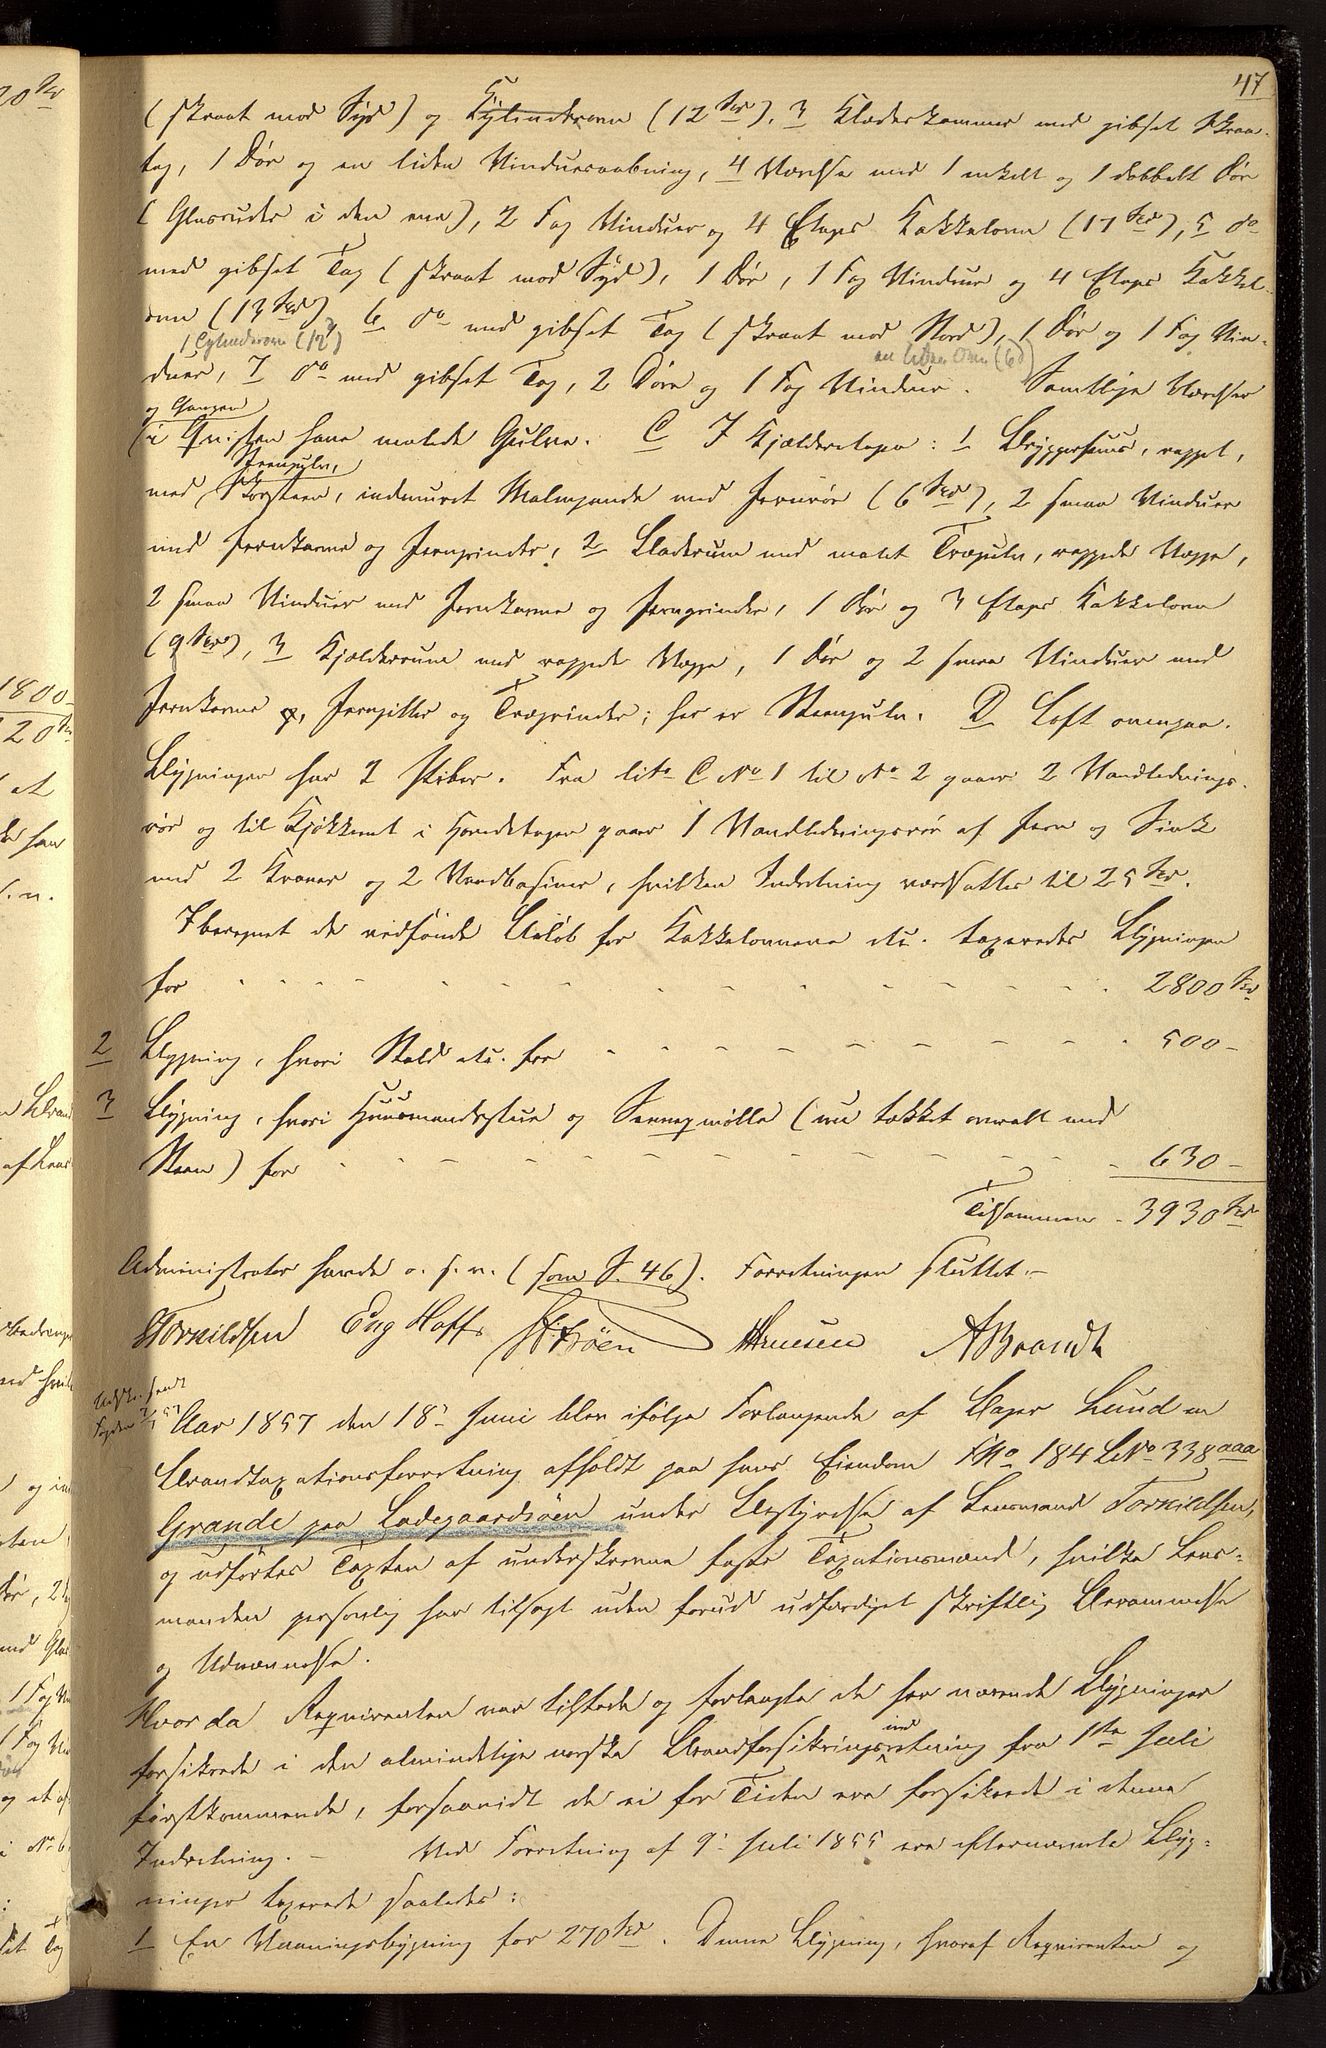 47
(skraat mod Syd) og Kylinderovn (12 Spd), 3 Klædeskammer med gibset Skraa-
tag, 1 Dør og en liden Vinduesaabning, 4 Værelse med 1 enkelt og 1 dobbelt Dør
(Glasruder i den ene), 2 Fag Vinduer og 4 Etages Kakkelovn (17 Spd), 5 do
med gibset Tag (skraat mod Syd), 1 Dør, 1 Fag Vinduer og 4 Etages Kakkel-
ovn (13 Spd), 6 do med gibset Tag (skraat mod Nord), 1 Dør og 1 Fag Vin-
1 Cylinderovn (12) en liden Ovn (6d)
duer, 7 do med gibset Tag, 2 Døre og 1 Fag Vinduer. Samtlige Værelser
og Gangen
i Qvisten have malede Gulve. C I Kjælderetagen: 1 Bryggerhuus, rappet,
Steengulv,
med Skorsteen, indmuret Malmgande med Jernrør (6 Spd), 2 smaa Vinduer
med Jernkarme og Jerngrinder, 2 Baderum med malet Trægulv, rappede Vægge,
2 smaa Vinduer med Jernkarme og Jerngrinder, 1 Dør og 3 Etages Kakkelovn
(9 Spd), 3 Kjælderrum med rappede Vægge, 1 Dør og 2 smaa Vinduer med
Jernkarme, Jerngitter og Trægrinder; her er Steengulv. D Loft ovenpaa.
Bygningen har 2 Piber. Fra lito C No 1 til No 2 gaaer 2 Vandlednings-
rør og til Kjøkkenet i Hovedetagen gaaer 1 Vandledningsrør af Jern og Zink
med 2 Kraner og 2 Vandbasiner, hvilken Indretning værdsattes til 25 Spd.
Iberegnet de vedføiede Beløb for Kakkelovnene etc. taxeredes Bygningen
for 2800 Spd
2 Bygning, hvori Stald etc. for 500 -
3 Bygning, hvori Huusmandsstue og Sennepmølle (nu tækket overalt med
Steen) for 630 -
Tilsammen 3930 Spd
Administrator havde o. s. v. (som S. 46). Forretningen sluttet.-
Torkildsen Eug Hoff Strøen Hansen ABrandt
Udskr. sendt
Fogden 2/7 57
Aar 1857 den 18de Juni blev ifølge Forlangende af Bager Lund en
Brandtaxationsforretning afholdt paa hans Eiendom MNo 184 LNo 338 aaa
Grande paa Ladegaardsøen under Bestyrelse af Lensmand Torkildsen,
og udførtes Taxten af underskrevne faste Taxationsmænd, hvilke Lens-
manden personlig har tilsagt uden forud udfærdiget skriftlig Berammelse
og Udnævnelse.
Hvorda Reqvirenten var tilstede og forlangte de her værende Bygninger
forsikrede i den almindelige norske Brandforsikringsindretning fra 1ste Juli
førstkommende, forsaavidt de ei for Tiden ere forsikrede i denne
Indretning. - Ved Forretning af 9de Juli 1855 ere efternævnte Byg-
ninger taxerede saaledes:
1 En Vaaningsbygning for 270 Spd. Denne Bygning, hvoraf Reqvirenten og